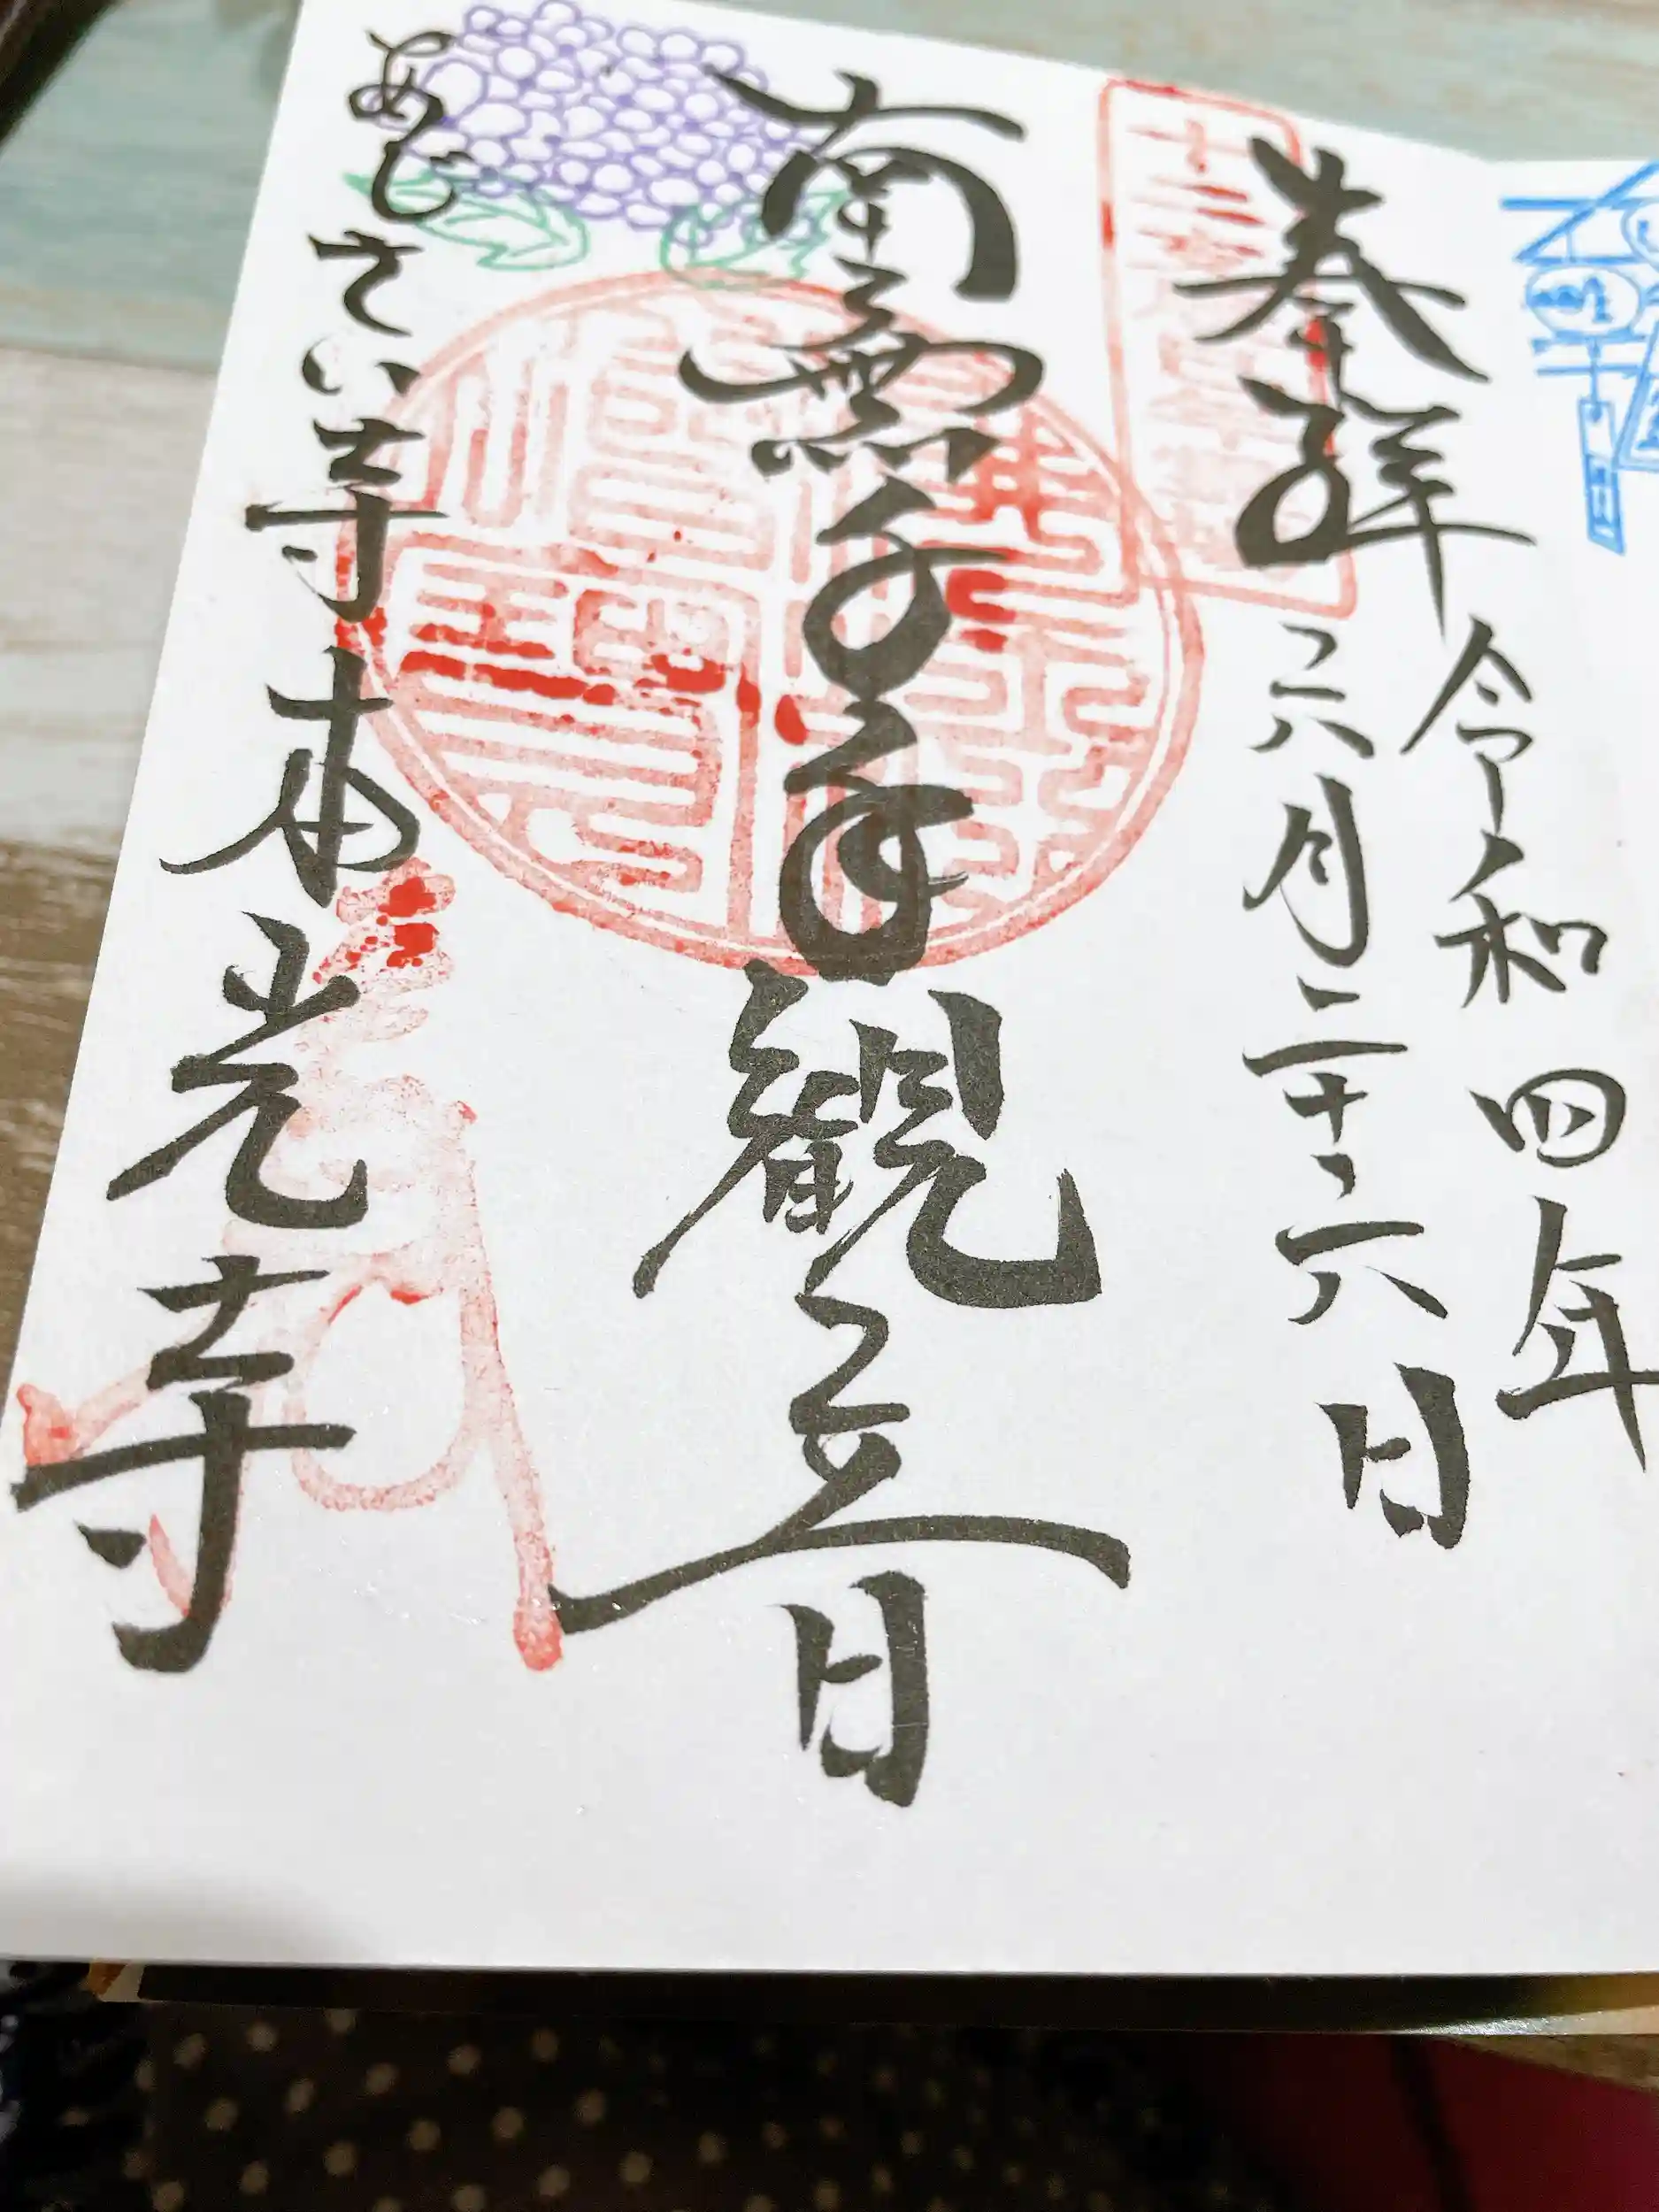 奉拜
令和四年
六月二十六日
南無千手觀音
あじさい寺本光寺